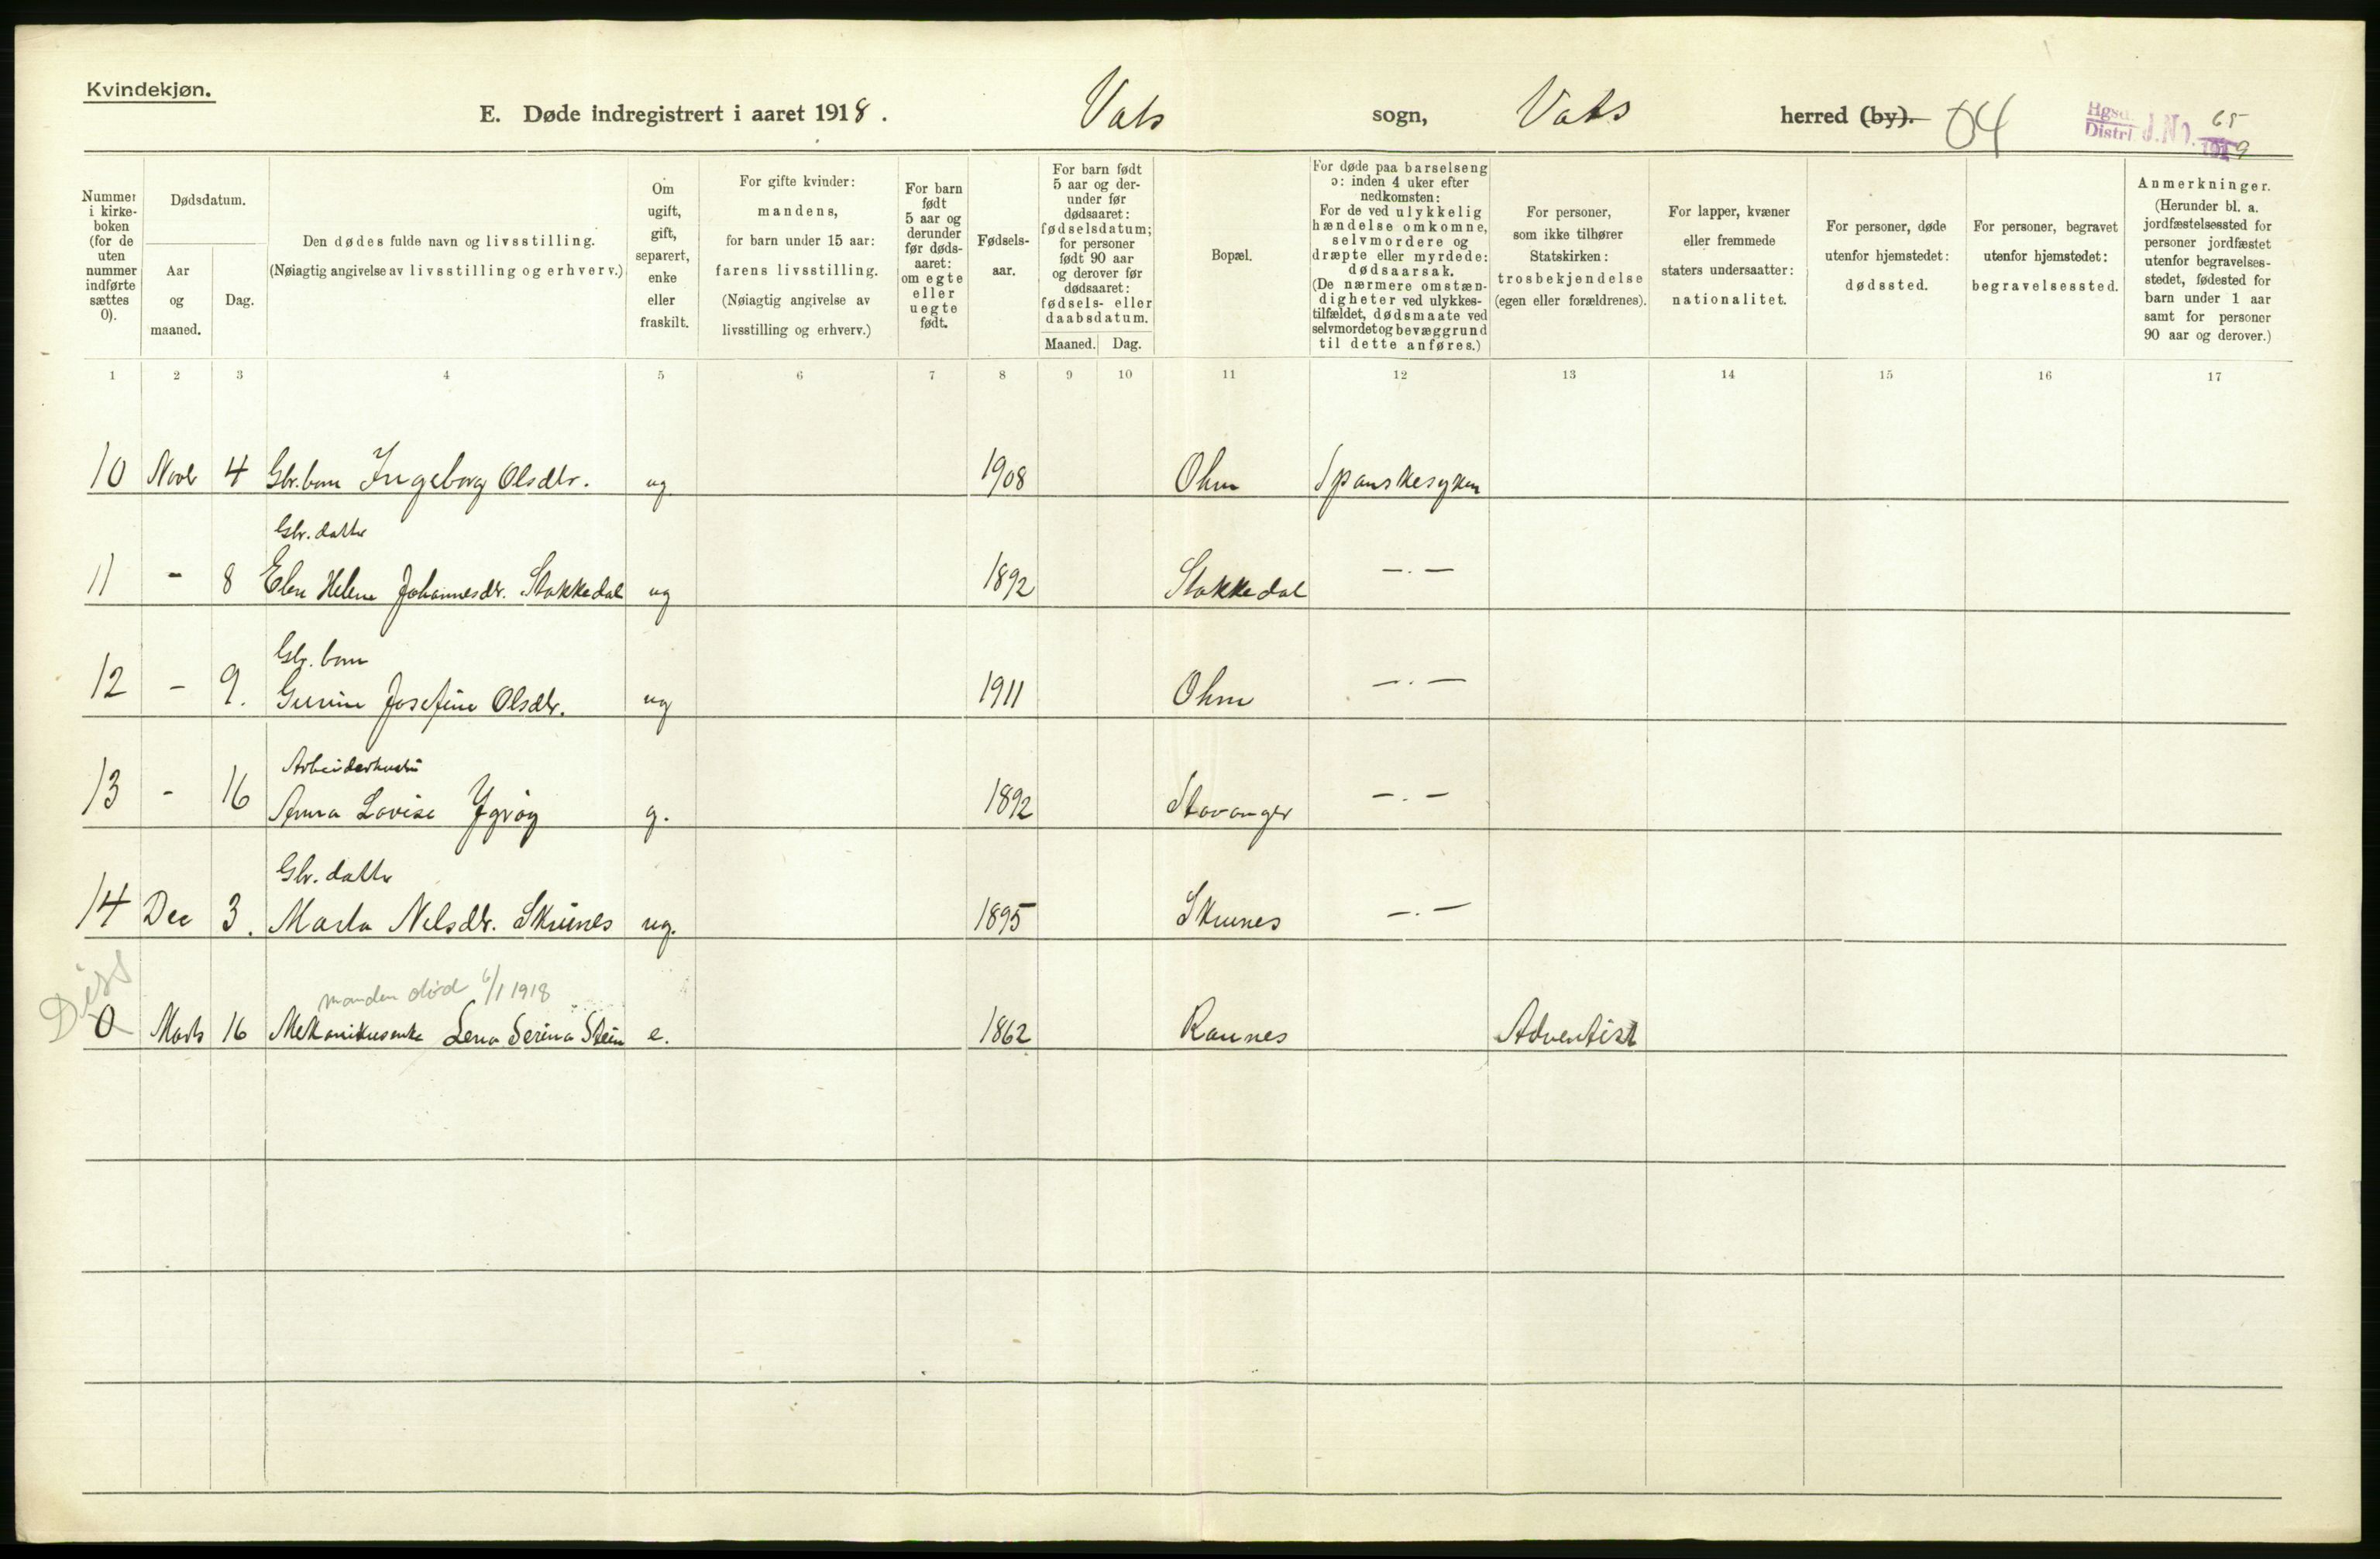 Kvindekjøn.
E. Døde indregistrert i aaret 1918. Vats sogn, Vats herred (by). 04
J. No. 65
1919
Nummer i kirkeboken (for de uten nummer indførte sættes 0).
Dødsdatum.
Aar og maaned.
Dag.
Den dødes fulde navn og livsstilling.
(Nøiagtig angivelse av livsstilling og erhverv.)
Om ugift, gift, separert, enke eller fraskilt.
For gifte kvinder: mandens, for barn under 15 aar: farens livsstilling.
(Nøiagtig angivelse av livsstilling og erhverv.)
For barn født 5 aar og derunder før dødsaaret: om egte eller uegte født.
Fødselsaar.
For barn født 5 aar og derunder før dødsaaret: fødselsdatum; for personer født 90 aar og derover før dødsaaret: fødsels- eller daabsdatum.
Maaned. Dag.
Bopæl.
For døde paa barselseng ɔ: inden 4 uker efter nedkomsten:
For de ved ulykkelig hændelse omkomne, selvmordere og dræpte eller myrdede: dødsaarsak.
(De nærmere omstændigheter ved ulykkestilfældet, dødsmaate ved selvmordet og bevæggrund til dette anføres.)
For personer, som ikke tilhører Statskirken: trosbekjendelse (egen eller forældrenes).
For lapper, kvæner eller fremmede staters undersaatter: nationalitet.
For personer, døde utenfor hjemstedet: dødssted.
For personer, begravet utenfor hjemstedet: begravelsessted.
Anmerkninger.
(Herunder bl. a. jordfæstelsessted for personer jordfæstet utenfor begravelsesstedet, fødested for barn under 1 aar samt for personer 90 aar og derover.)
1 2 3 4 5 6 7 8 9 10 11 12 13 14 15 16 17
10 Novb 4 Gbr. barn Ingeborg Olsdtr. ug 1908 Ohm Spanskesyken
Gbr. datter
11 - 8 Elen Helene Johannesdr. Stakkedal ug 1892 Stakkedal —.—
Gbr. barn
12 - 9. Gurine Josefine Olsdtr. ug 1911 Ohm —.—
Arbeiderhustru
13 - 16 Anna Lovise g. 1892 Stavanger —.—
Gbr. datter
14 Dec 3. Marta Nilsdtr. Skrunes ug. 1895 Skrunes —.—
Diss
manden død 6/1 1918
0 Marts 16 Mekanikusenke Lena Serina Stein e. 1862 Raunes Adventist